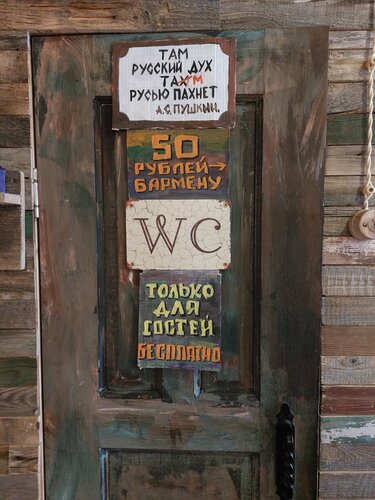 ТАМ
РУССКИЙ ДУХ
ТАМ
РУСЬЮ ПАХНЕТ
А.С. ПУШКИН.
50
РУБЛЕЙ→
БАРМЕНУ
WC
ТОЛЬКО
ДЛЯ
ГОСТЕЙ
БЕСПЛАТНО